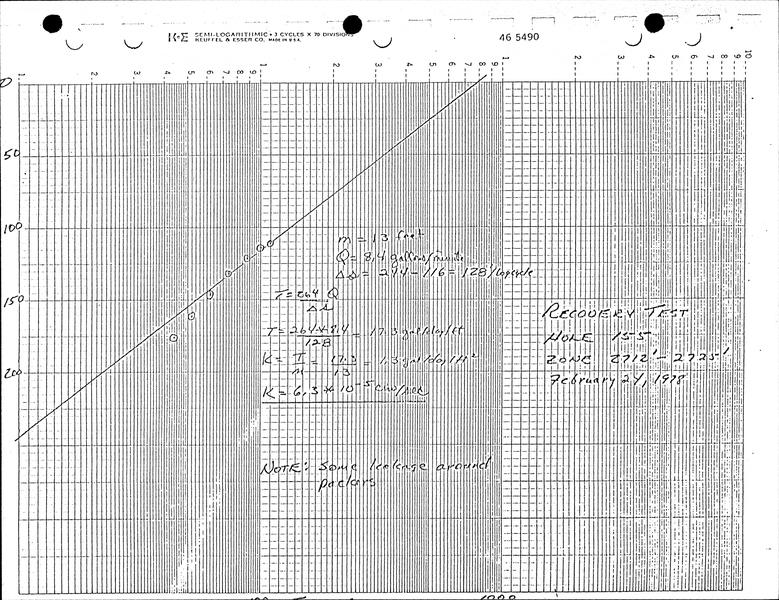 K+E SEMI-LOGARITHMIC • 3 CYCLES X 70 DIVISIONS
KEUFFEL & ESSER CO. MADE IN U.S.A.
46 5490
1 2 3 4 5 6 7 8 9 1 2 3 4 5 6 7 8 9 1 2 3 4 5 6 7 8 9 10
0
50
100
150
200
m = 13 feet
Q = 8.4 gallons/minute
Δs = 244 - 116 = 128'/logcycle
T = 264 Q
Δs
T = 264 * 8.4 = 17.3 gal/day/ft
128
K = T = 17.3 = 1.3 gal/day/ft²
m 13
K = 6.3 * 10⁻⁵ cm/sec
RECOVERY TEST
HOLE 155
ZONE 2712' - 2725'
February 24, 1978
NOTE: Some leakage around
packers